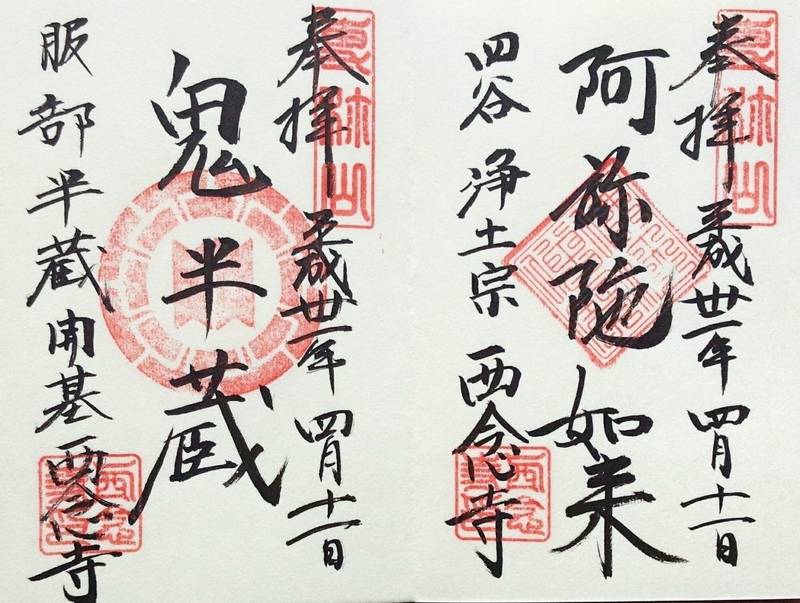 奉拝
平成卅一年 四月十一日
阿弥陀如来
四谷 浄土宗 西念寺
奉拝
平成卅一年 四月十一日
鬼半蔵
服部半蔵開基西念寺